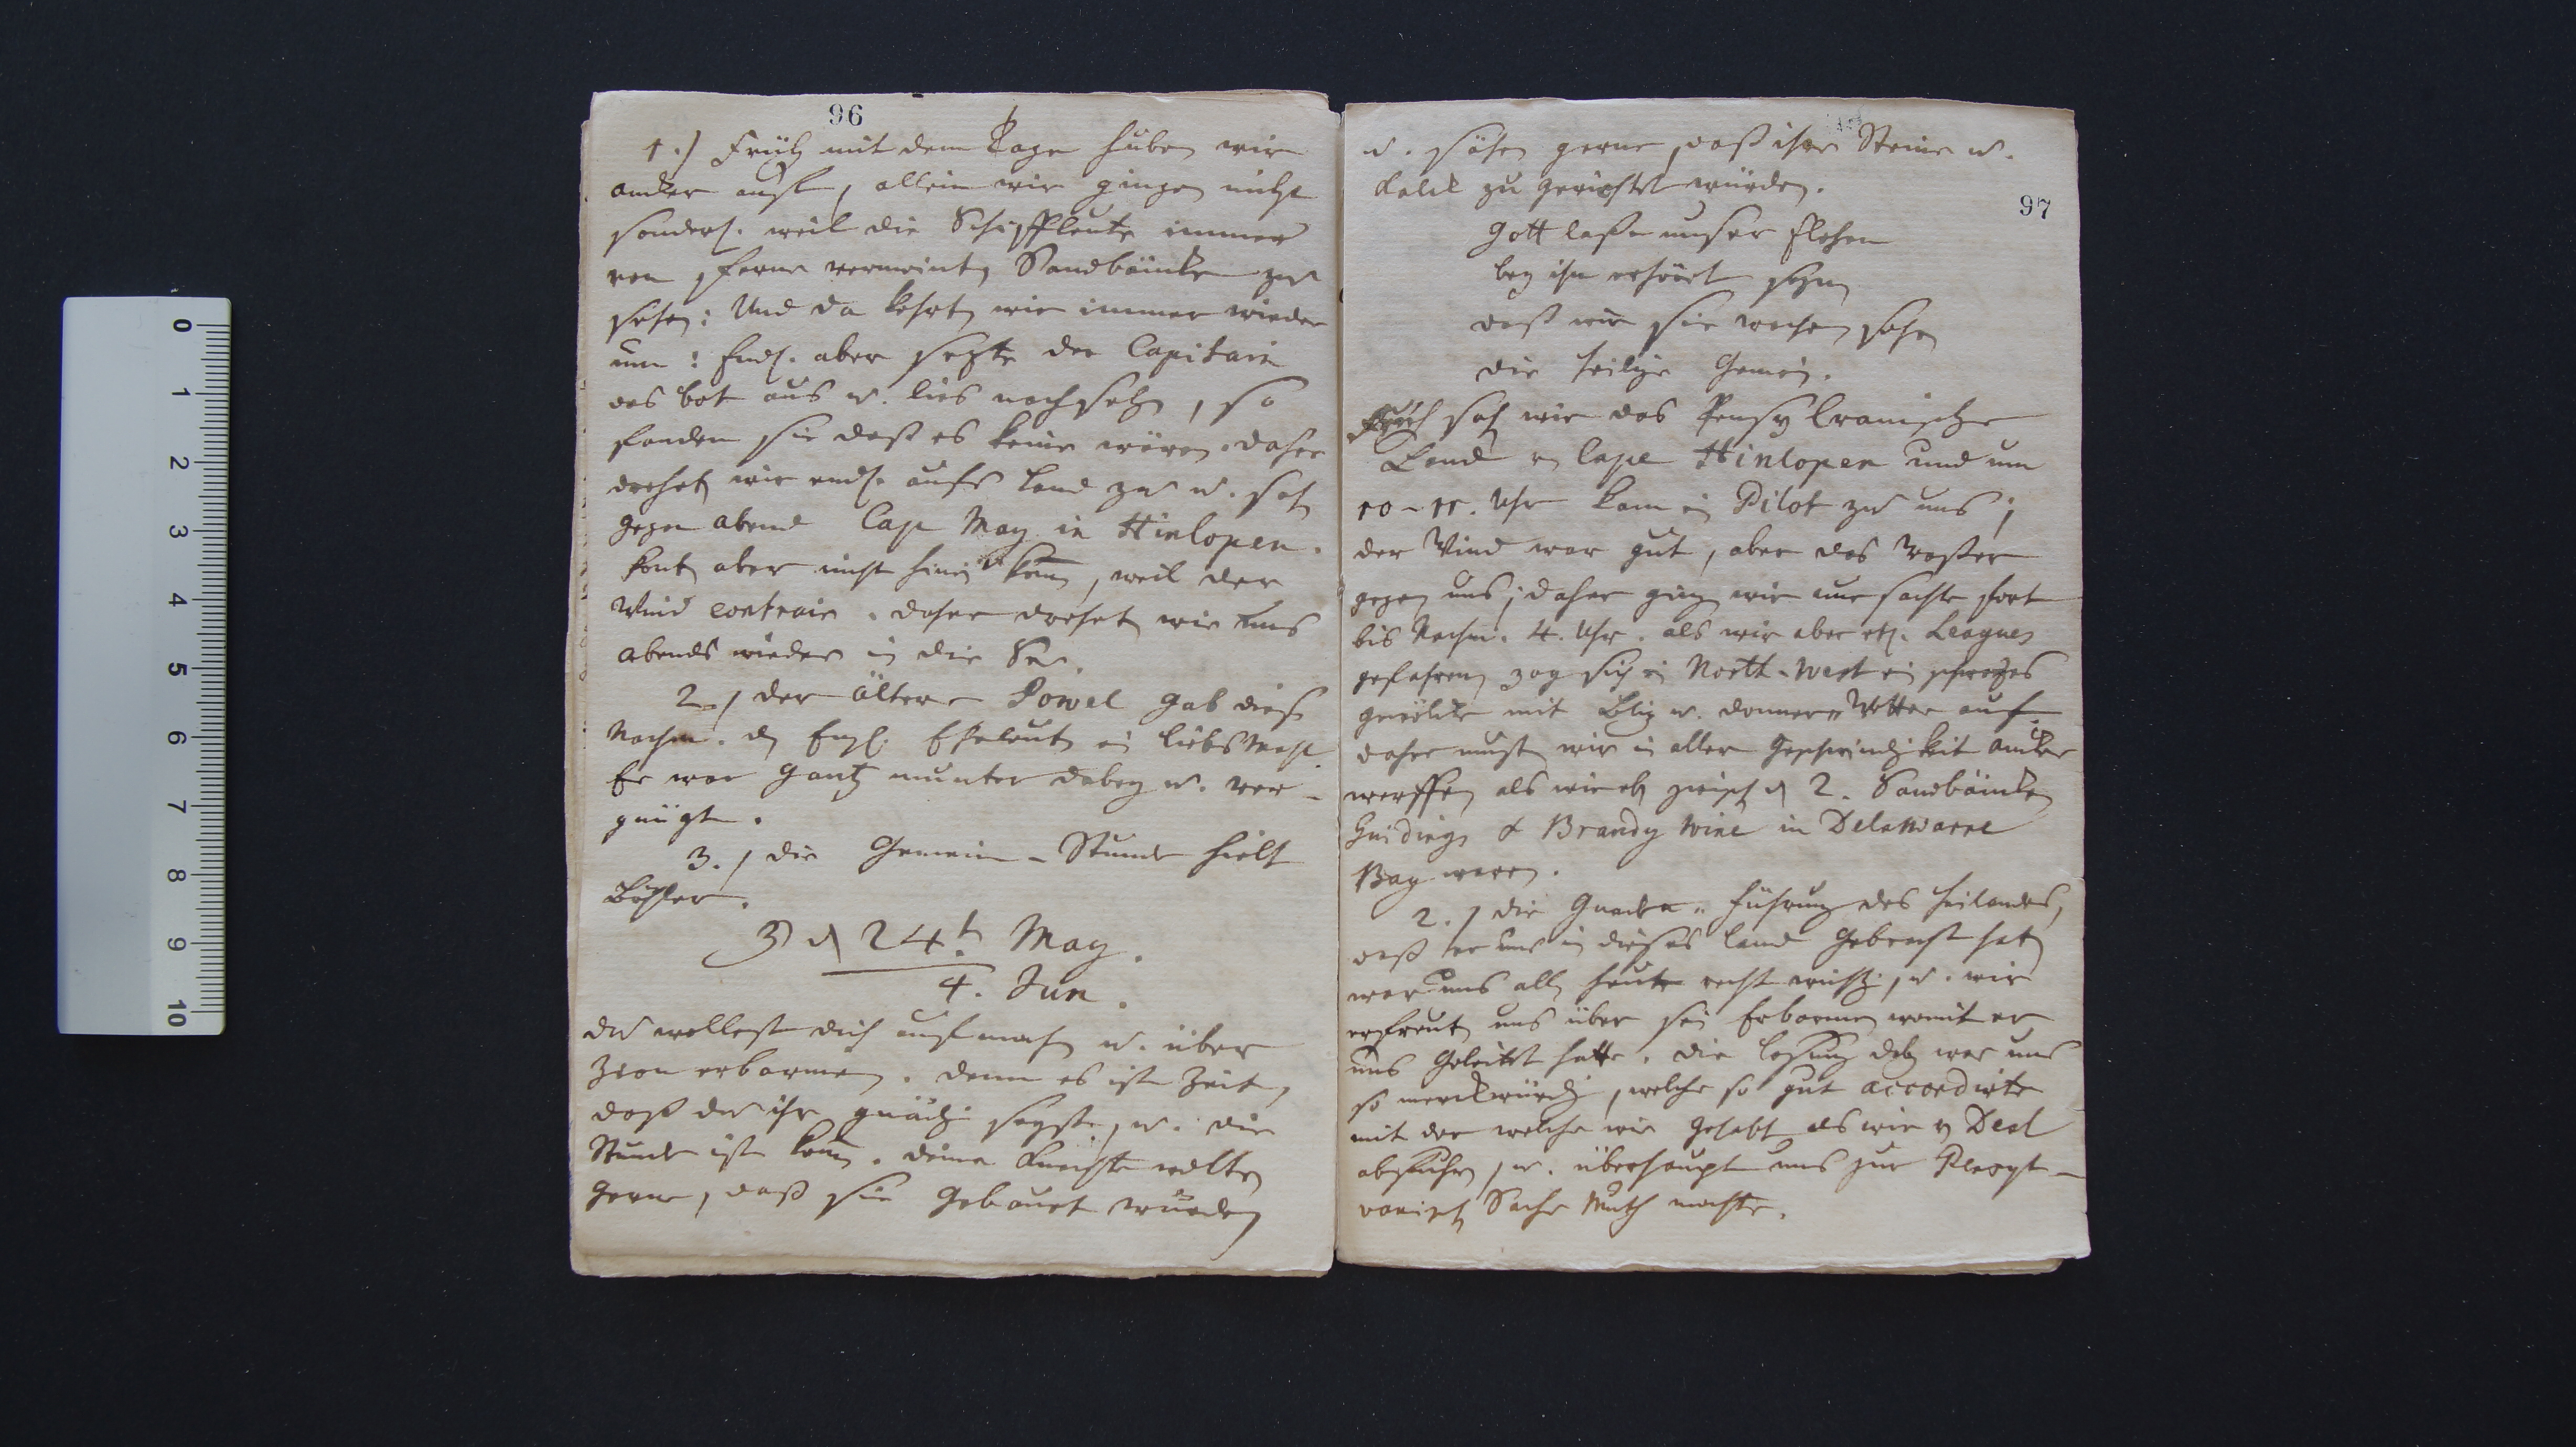 96
1.) Früh mit dem Tage huben wir
anker auf, allein wir gingen nicht
sonderl. weil die Schiffleute immer
von ferne vermeinten Sandbäncke zu
sehen: Und da kehrten wir immer wieder
um! Endl. aber setzte der Capitain
das bot aus u. lies nachsehen, so
fanden sie daß es keine wären. daher
drehten wir endl. aufs Land zu u. sahen
gegen abend Cape May u Hinlopen.
konten aber nicht hinein kom̄en, weil der
Wind contrair. daher drehten wir uns
abends wieder in die See.
2.) der Ältere Powel gab diese
Nachm. den Engl. Eheleuten ein liebsMahl
Er war gantz munter dabey u. ver-
gnügt.
3.) die Gemein-Stunde hielt
Böhler.
♂ d 24t. May.
4. Jun.
du wollest dich aufmachen u. über
Zion erbarmen. denn es ist Zeit,
daß du ihr gnädig seyst, u. die
Stunde ist kom̄en. deine Knechte wolten
gerne, daß sie gebauet würden
u. sähen gerne, daß ihre Steine u.
Kalck zugerichtet würden.
97
Gott laße unser flehen
bey ihm erhört seyn
daß wir sie wachsen sehen
die heilige Gemein.
Früh sahen wir das Pensylvanische
Land u Cape Hinlopen und um
10-11. Uhr kam ein Pilot zu uns;
der Wind war gut, aber das Waßer
gegen uns; daher gingen wir nur sachte fort
bis Nachm. 4. Uhr. als wir aber etl. Leagues
gefahren, zog sich in North-West ein schwartzes
gewölcke mit Blitz u. donner-Wetter auf
daher musten wir in aller Geschwindigkeit ancker
werffen als wir eben zwischen den 2. Sandbäncken
& Brandy wine in Delawarre
Bay waren.
2.) die Gnaden-führung des heilandes,
daß er uns in dieses land gebracht hat,
war uns allen heute recht wichtig, u. wir
erfreuten uns über sein Erbarmen womit er
uns geleitet hatte. die losung dabey war uns
so merckwürdig, welche so gut accordirte
mit der welche wir gehabt als wir v Deal
abfuhren, u. überhaupt uns zur
Sache Muth machte.